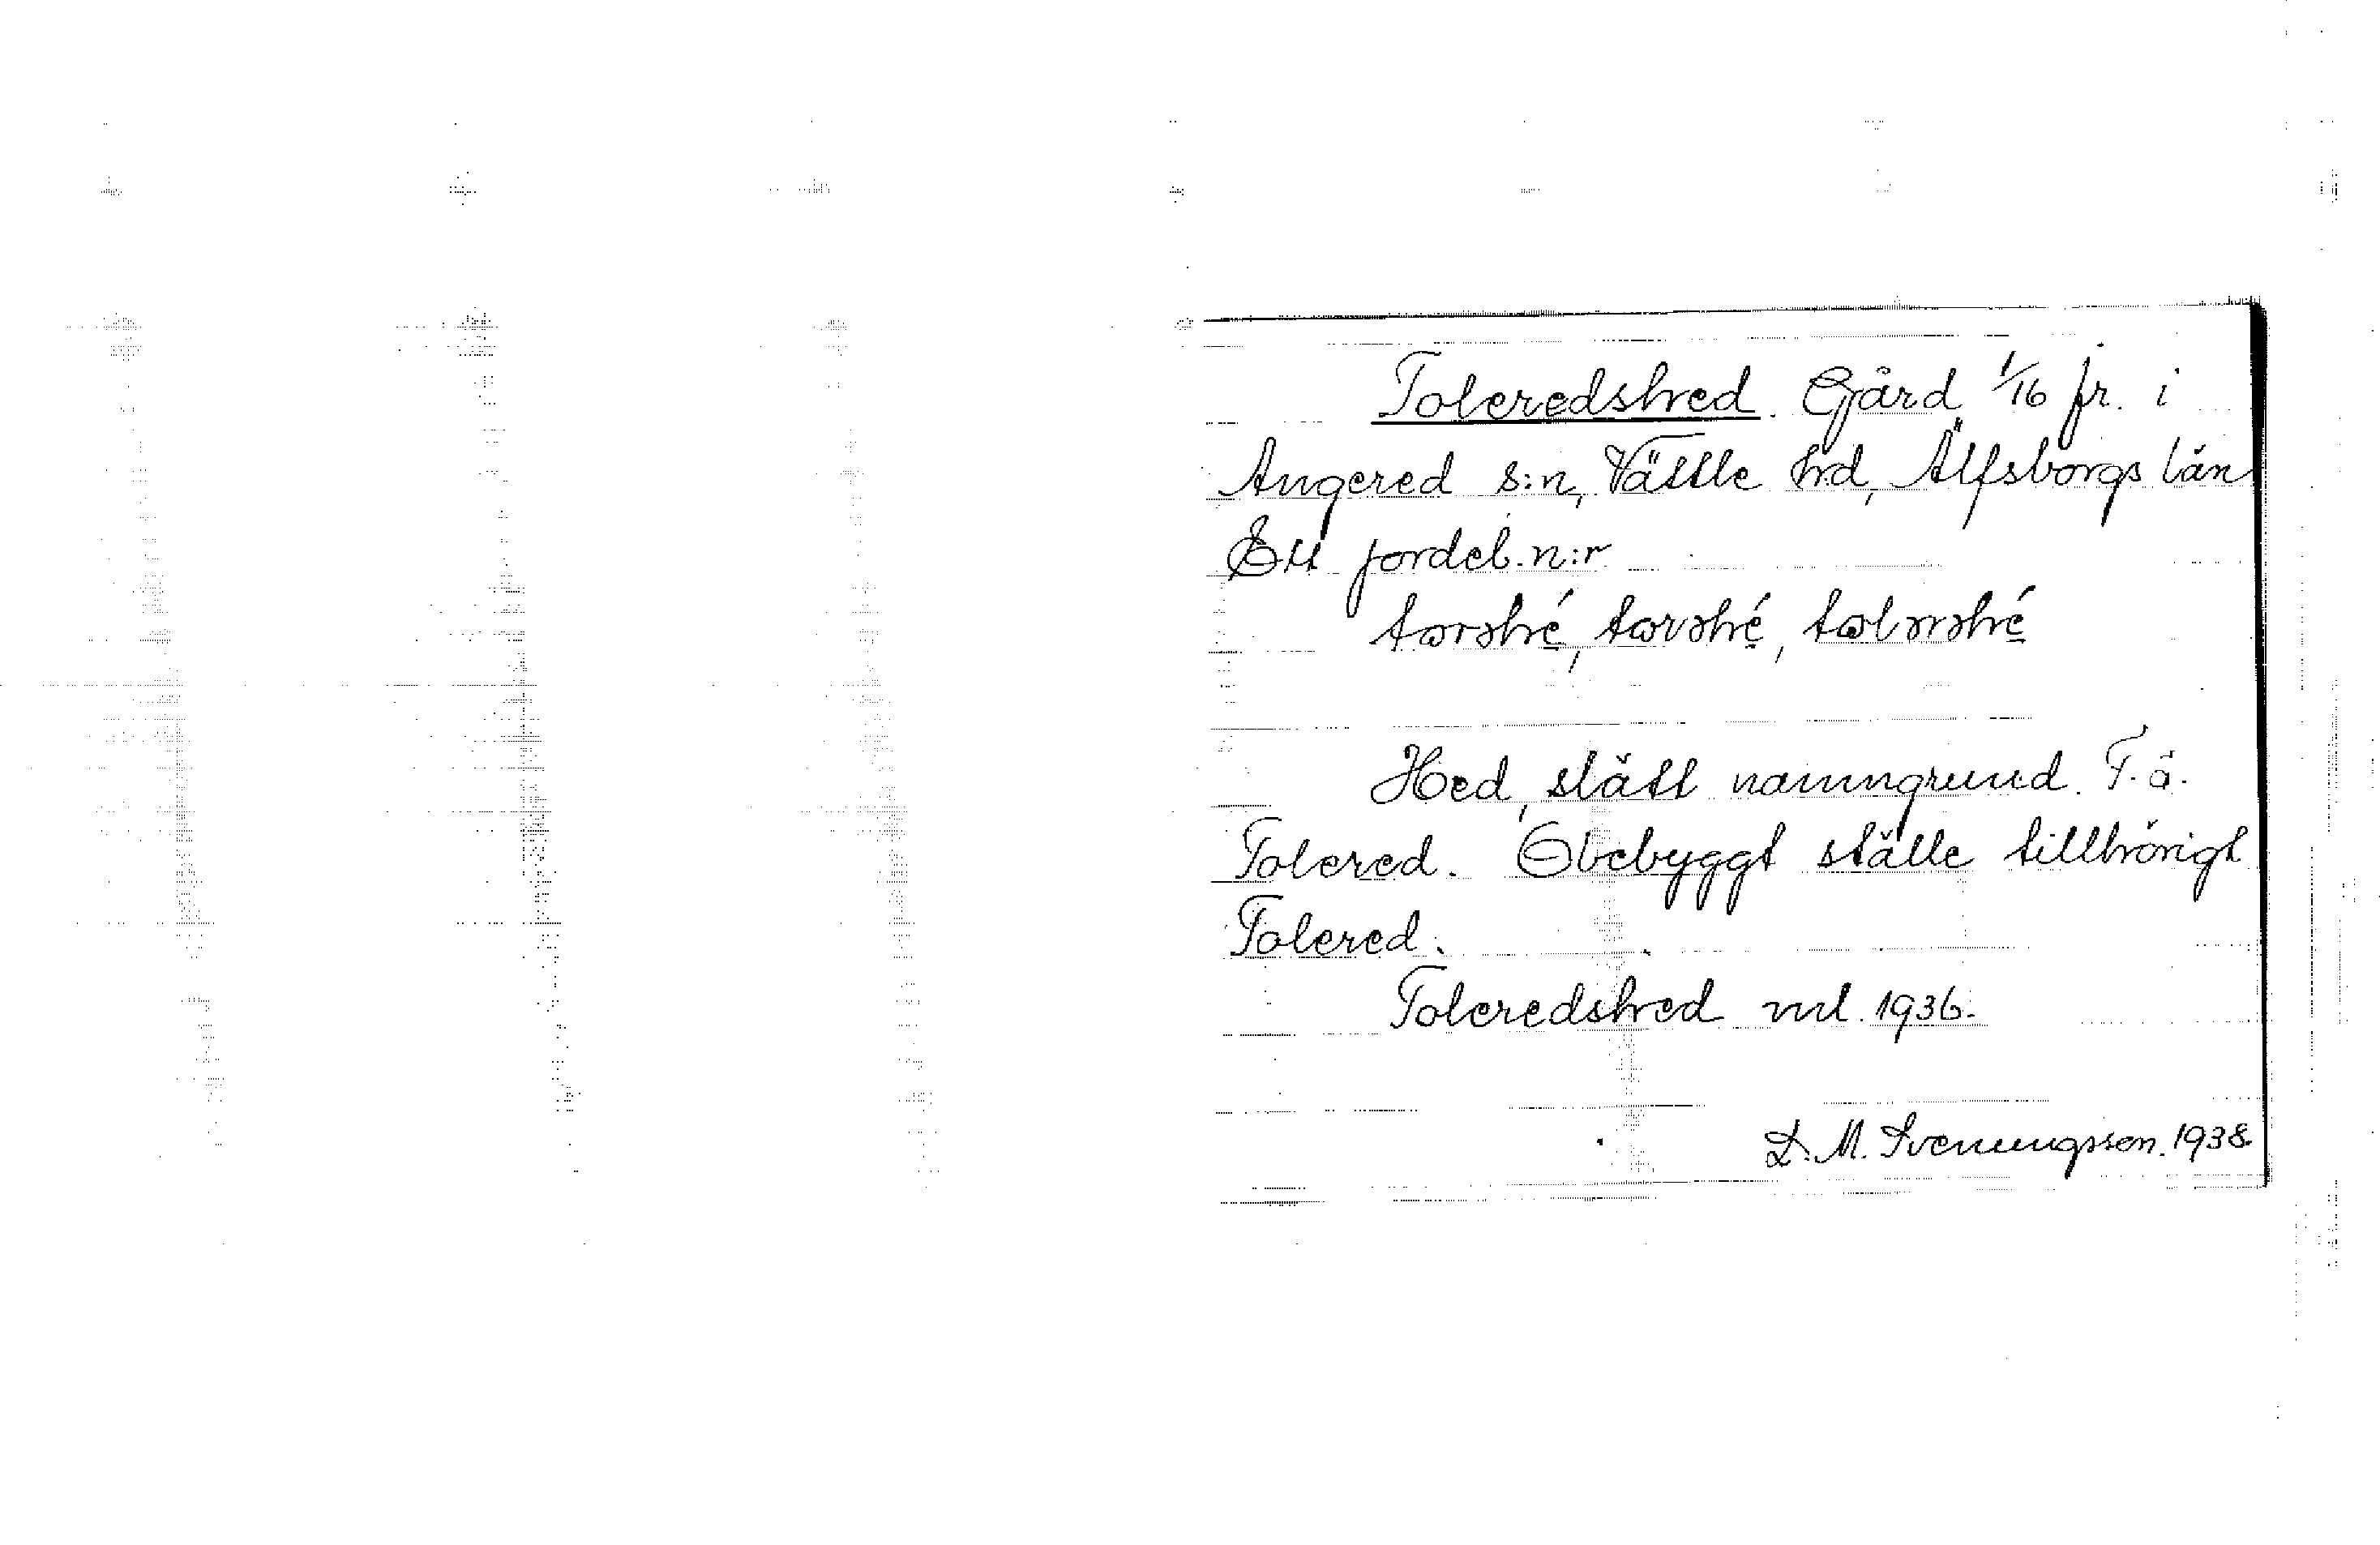 Toleredshed. Gård 1/16 fr. i
Angered s:n, Vättle hrd, Älfsborgs län
Ett jordeb. n:r
Hed, slätt namngrund. T. ä.
Tolered. Obebyggt ställe tillhörigt
Tolered.
Toleredshed ml. 1936.
D. M. Svenungsson. 1938.